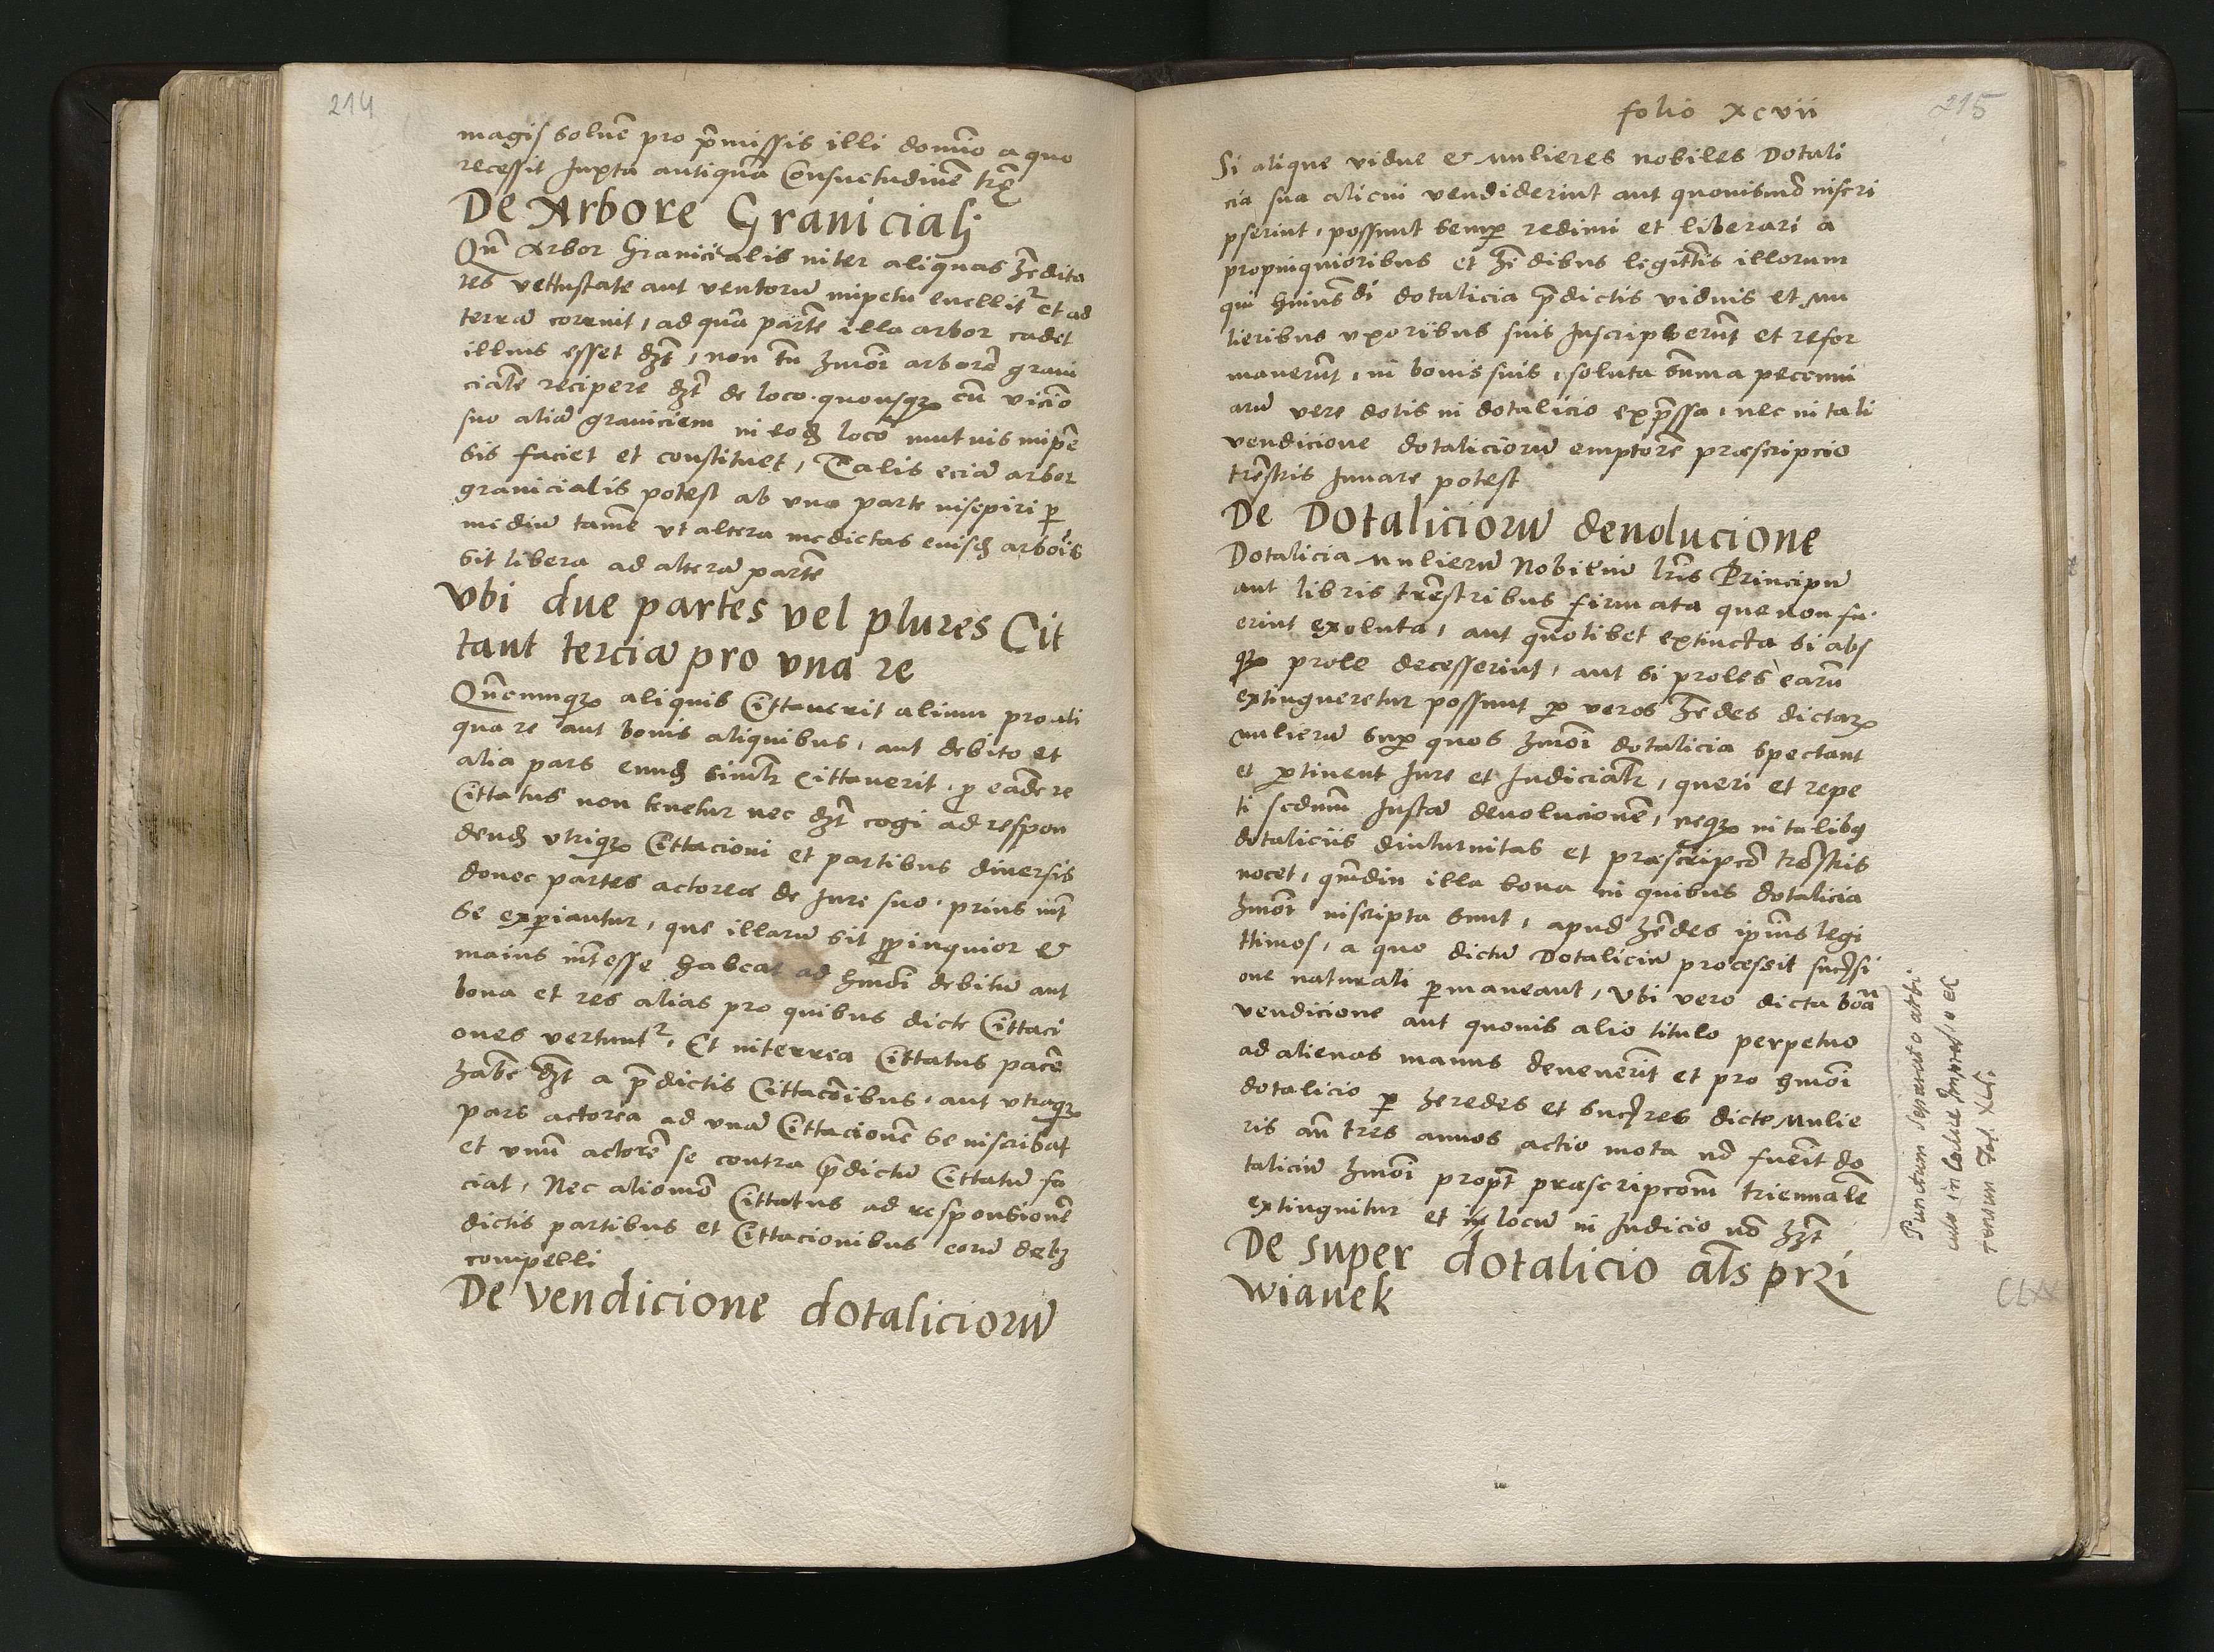 214
magis soluē pro p̄missis illi domīo a quo
recessit Juxta antiquā Consuetudinē trę̄
De Arbore Granicialj
Qn̄ Arbor Granicialis inter aliquas h̄edita
tes vettustate aut ventorū impetu euellit² et ad
terrā corruit, ad quā partē illa arbor cadet
illius esset dꝫt, non tn̄ hmōi arborē grani
cialē recipere dꝫt de loco. quousqꝫ cū vicīo
suo aliā graniciem in eodꝫ loco mutuis impē
sis faciet et constituet, Talis eciā arbor
granicialis potest ab vna parte insepiri ꝑ
mediū tamē vt altera medietas eiusdꝫ arbōis
sit libera ad alterā partē
Vbi due partes vel plures Cit
tant terciā pro vna re
Qn̄cumqꝫ aliquis Cittauerit alium pro ali
qua re aut bonis aliquibus, aut debito et
alia pars eundꝫ similr̄ Cittauerit, ꝓ eadē re
Cittatus non tenetur nec dꝫt cogi ad respon
dendꝫ vtriqꝫ Cittacioni et partibus diuersis
donec partes actoreæ de Jure suo. prius int̄
se exꝑiantur, que illarū sit ꝓpinquior &
maius int̄esse habeat ad hmōi debitū aut
bona et res alias pro quibus dicte Cittaci
ones vertunt², Et interea Cittatus pacē
habē dꝫt a p̄dictis Cittacōibus, aut vtraqꝫ
pars actorea ad vnā Cittacionē se inscribat
et vnū actorē se contra p̄dictū Cittatū fa
ciat, Nec aliomō Cittatus ad responsionē
dictis partibus et Cittacionibus eorū debꝫ
compelli
De Vendicione dotaliciorū
folio xcvii
215
Si alique vidue & mulieres nobiles Dotali
cia sua alicui vendiderint aut quouismō inscri
pserint, possunt semꝑ redimi et liberari a
propinquioribus et h̄edibus ligittīs illorum
qui huiusdi dotalicia p̄dictis viduis et mu
lieribus vxoribus suis Inscripserūt et refor
mauerūt, in bonis suis, soluta sūma pecuni
arū vere dotis in dotalicio exp̄ssa, nec in tali
vendicione dotaliciorū emptorē præscripcio
trēstris Juuare potest
De Dotaliciorū deuolucione
Dotalicia Mulierū Nobiliū lr̄is Principū
aut libris trēstribus firmata que non fu
erint exoluta, aut quotibet extincta si abs
qꝫ prole decesserint, aut si proles earū
extingueretur possunt ꝑ veros h̄edes dictarꝫ
mulierū suꝑ quos hmōi dotalicia spectant
et ꝑtinent Jure et Judicialr̄, queri et repe
ti scdum Justā deuolucionē, neqꝫ in talibꝯ
dotaliciis diuturnitas et præscripcō trēstris
nocet, qm̄diu illa bona in quibus dotalicia
hmōi inscripta sunt, apud h̄edes ipīus legi
ttimos, a quo dictū Dotaliciū processit succꝫsi
one naturali ꝑmaneant, Vbi vero dicta bōa
vendicione aut quouis alio titulo perpetuo
ad alienas manus deuenerit et pro hmōi
dotalicio ꝑ heredes et succꝫres dicte Mulie
ris an̄ tres annos actio mota nō fuerit do
taliciū hmōi propt̄ præscripcōm triennalē
extinguitur et locū in Judicio nō hꝫt
De super dotalicio als̄ przi
wianek
Punctum separato arti
culo in Codice Impresso ex
tensum Fol. XLj.